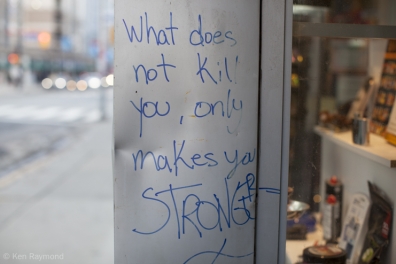 What does
not Kill
you, only
makes you
STRONGER
© Ken Raymond